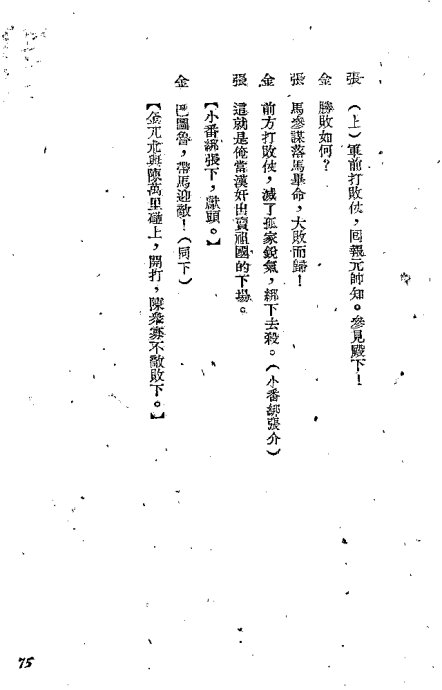 張 （上）軍前打敗仗，回報元帥知。參見殿下！
金 勝敗如何？
張 馬參謀落馬畢命，大敗而歸！
金 前方打敗仗，滅了孤家銳氣，綁下去殺。（小番綁張介）
張 這就是俺當漢奸出賣祖國的下場。
【小番綁張下，獻頭。】
金 巴圖魯，帶馬迎敵！（同下）
【金兀朮與陳萬里碰上，開打，陳衆寡不敵敗下。】
75